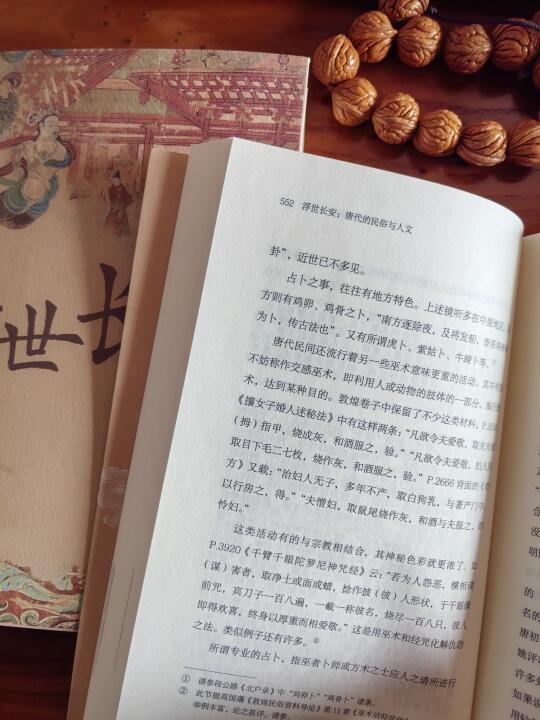 世
长
552 浮世长安：唐代的民俗与人文
卦”，近世已不多见。
占卜之事，往往有地方特色。上述镜听多在中原地区，
方则有鸡卵、鸡骨之卜，“南方逐除夜，及将发船，皆杀鸡择骨
为卜，传古法也”。又有所谓虎卜、紫姑卜、牛蹄卜等。
唐代民间还流行着另一些巫术意味更重的活动。其中
不妨称作交感巫术，即利用人或动物的肢体的一部分，施行
术，达到某种目的。敦煌卷子中保留了不少这类材料。
《攘女子婚人述秘法》中有这样两条：“凡欲令夫爱敬，取夫大
（拇）指甲，烧成灰，和酒服之，验。”“凡欲令夫爱敬，妇人
取目下毛二七枚，烧作灰，和酒服之，验。”P.2666背面的
方》又载：“治妇人无子，多年不产，取白狗乳，与著产门中
以行房之，得。”“夫憎妇，取鼠尾烧作灰，和酒与夫服之，
怜妇。”
这类活动有的与宗教相结合，其神秘色彩就更浓了。如
P.3920《千臂千眼陀罗尼神咒经》云：“若为人怨恶，横相
（谋）害者，取净土或面或蜡，捻作披（彼）人形状，于千眼像
前咒，宾刀子一百八遍，一截一称彼名，烧尽一百八只，彼人
即得欢喜，终身以厚重而相爱敬。”这是用巫术和经咒化解仇怨
之法。类似例子还有许多。②
所谓专业的占卜，指巫者卜师或方术之士应人之请所进行
① 请参段公路《北户录》中“鸡卵卜”“鸡骨卜”诸条。
② 此节据高国藩《敦煌民俗资料导论》第11章《巫术信仰民俗
举例丰富，论之甚详，请参。
会
明
的
名的
唐初
姚评
许多
爱
如果
用